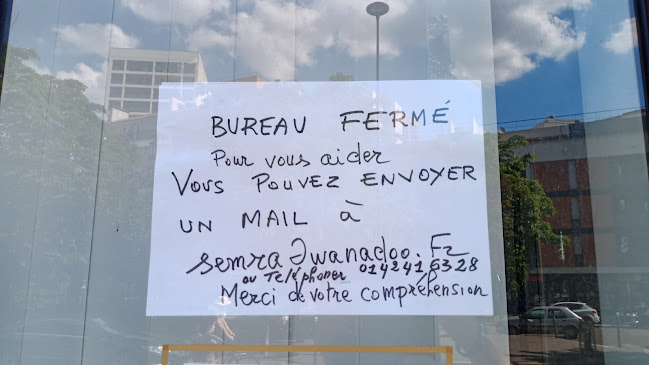 BUREAU FERMÉ
Pour vous aider
VOUS POUVEZ ENVOYER
UN MAIL à
semra@wanadoo.Fr
ou Teléphoner 0142416328
Merci de votre compréhension